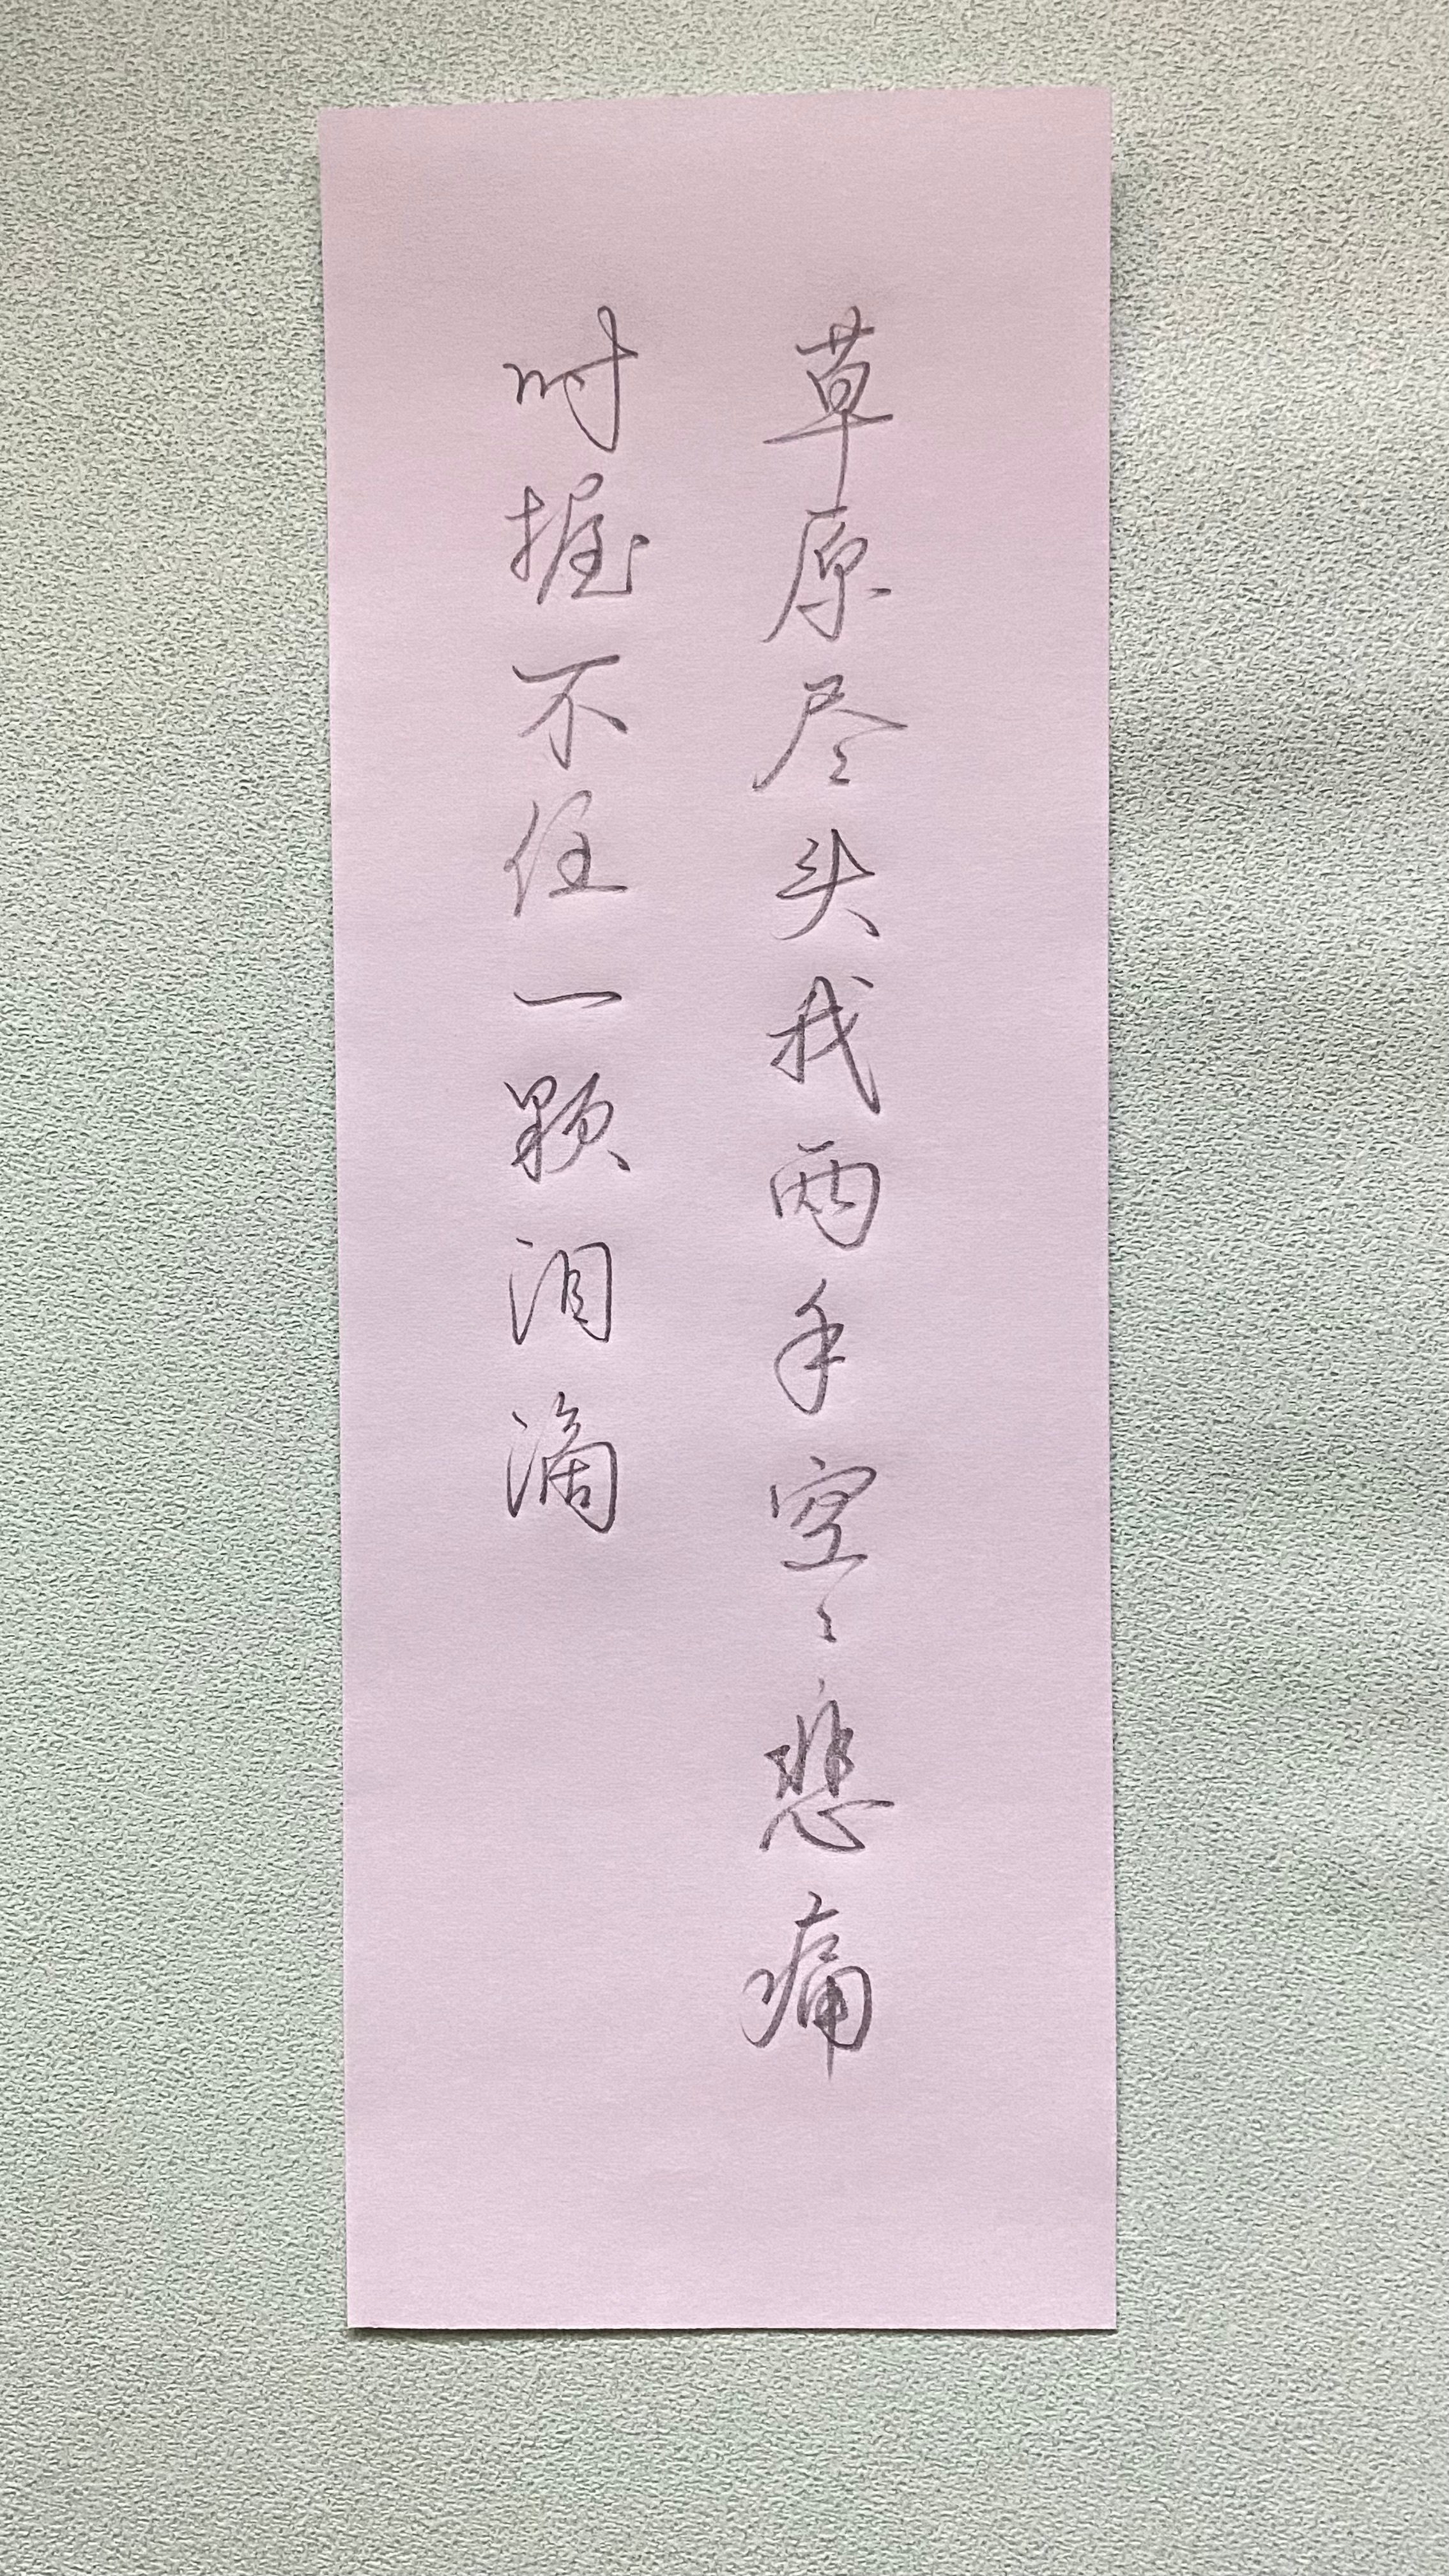 草原尽头我两手空々悲痛
时握不住一颗泪滴